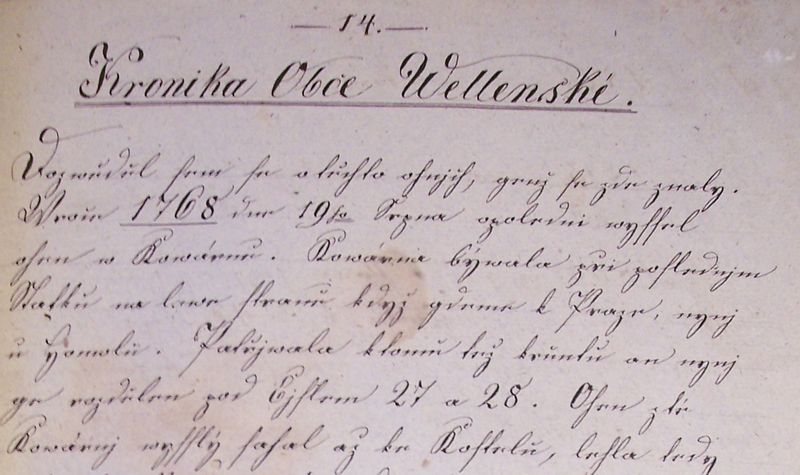 — 14. —
Kronika Obce Wellenské.
Dozwěděl sem se o těchto ohnjch, genž se zde znaly.
W roce 1768 dne 19ho Srpna opoledni wyssel
ohen w Kowárně. Kowárna bywala pri poslednjm
Statku na lewe straně když gdeme k Praze, nynj
u Homolů. Patřjwala ktomu též kruntu an nynj
ge rozdělen pod Čjslem 27 a 28. Ohen z té
Kowárnj wysslý sahal až ke Kostelu, lehla tedy